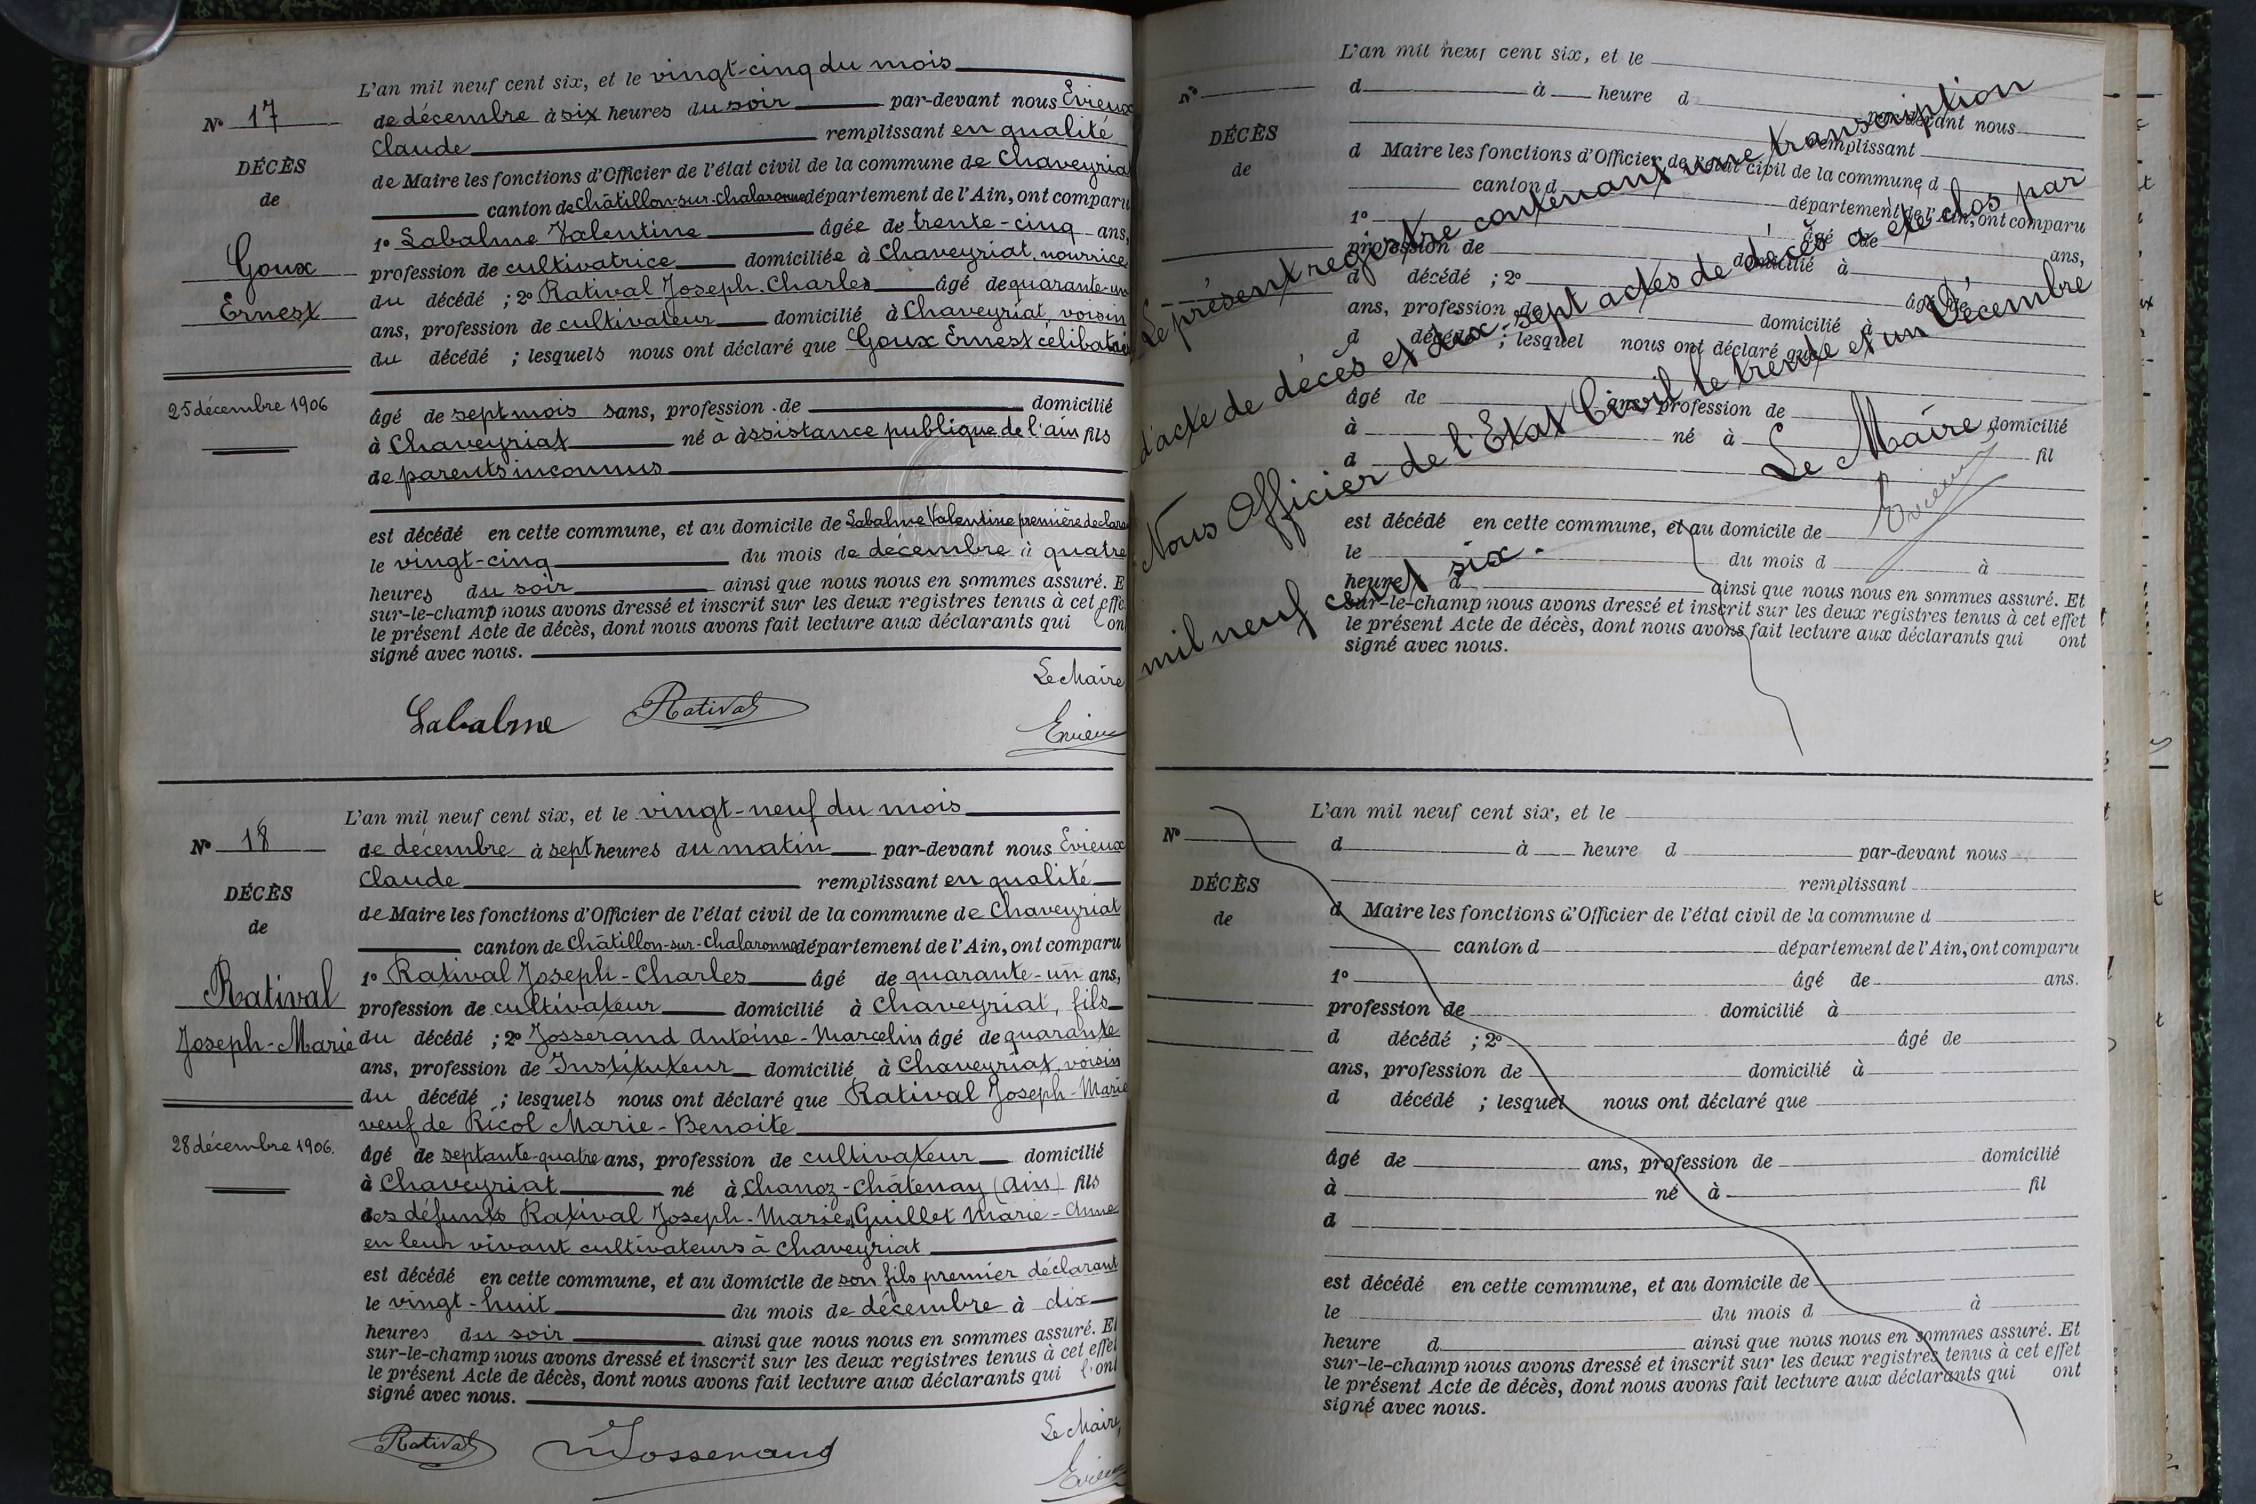 L'an mil neuf cent six, et le vingt-cinq du mois
N° 17
de décembre à six heures du soir par-devant nous Evieux
Claude remplissant en qualité
DÉCÈS
de Maire les fonctions d'Officier de l'état civil de la commune de Chaveyriat
de
canton de Châtillon-sur-Chalaronne département de l'Ain, ont comparu
1° Labalme Valentine âgée de trente-cinq ans,
Goux
profession de cultivatrice domiciliée à Chaveyriat, nourrice
Ernest
du décédé ; 2° Ratival Joseph-Charles âgé de quarante-un
ans, profession de cultivateur domicilié à Chaveyriat, voisin
du décédé ; lesquels nous ont déclaré que Goux Ernest célibataire
25 décembre 1906
âgé de sept mois sans, profession de domicilié
à Chaveyriat né à assistance publique de l'ain fils
de parents inconnus
est décédé en cette commune, et au domicile de Labalme Valentine première déclara
le vingt-cinq du mois de décembre à quatre
heures du soir ainsi que nous nous en sommes assuré. E
sur-le-champ nous avons dressé et inscrit sur les deux registres tenus à cet effe
le présent Acte de décès, dont nous avons fait lecture aux déclarants qui l'on
signé avec nous.
Le Maire
Labalme Ratival Evieux
L'an mil neuf cent six, et le vingt-neuf du mois
N° 18
de décembre à sept heures du matin par-devant nous Evieux
Claude remplissant en qualité
DÉCÈS
de Maire les fonctions d'Officier de l'état civil de la commune de Chaveyriat
de
canton de Châtillon-sur-Chalaronne département de l'Ain, ont comparu
1° Ratival Joseph-Charles âgé de quarante-un ans,
Ratival
profession de cultivateur domicilié à Chaveyriat, fils
Joseph-Marie
du décédé ; 2° Josserand Antoine-Marcelin âgé de quarante
ans, profession de Instituteur domicilié à Chaveyriat, voisin
du décédé ; lesquels nous ont déclaré que Ratival Joseph-Marie
veuf de Ricol Marie-Benoite
28 décembre 1906.
âgé de septante-quatre ans, profession de cultivateur domicilié
à Chaveyriat né à Chanoz-Châtenay (Ain) fils
des défunts Ratival Joseph-Marie et Guillet Marie-Anne
en leur vivant cultivateurs à Chaveyriat
est décédé en cette commune, et au domicile de son fils premier déclarant
le vingt-huit du mois de décembre à dix
heures du soir ainsi que nous nous en sommes assuré. Et
sur-le-champ nous avons dressé et inscrit sur les deux registres tenus à cet effet
le présent Acte de décès, dont nous avons fait lecture aux déclarants qui l'ont
signé avec nous.
Le Maire,
Ratival Josserand Evieux
L'an mil neuf cent six, et le
N°
d à heure d par-devant nous
remplissant
DÉCÈS
d Maire les fonctions d'Officier de l'état civil de la commune d
de
canton d département de l'Ain, ont comparu
1° âgé de ans,
profession de domicilié à
d décédé ; 2° âgé de
ans, profession de domicilié à
d décédé ; lesquel nous ont déclaré que
âgé de ans, profession de domicilié
à né à fil
d
est décédé en cette commune, et au domicile de
le du mois d à
heure d ainsi que nous nous en sommes assuré. Et
sur-le-champ nous avons dressé et inscrit sur les deux registres tenus à cet effet
le présent Acte de décès, dont nous avons fait lecture aux déclarants qui ont
signé avec nous.
Le présent registre contenant une transcription
d'acte de décès et dix-sept actes de décès a été clos par
Nous Officier de l'Etat Civil le trente et un Décembre
mil neuf cent six.
Le Maire,
Evieux
L'an mil neuf cent six, et le
N°
d à heure d par-devant nous
remplissant
DÉCÈS
d Maire les fonctions d'Officier de l'état civil de la commune d
de
canton d département de l'Ain, ont comparu
1° âgé de ans.
profession de domicilié à
d décédé ; 2° âgé de
ans, profession de domicilié à
d décédé ; lesquel nous ont déclaré que
âgé de ans, profession de domicilié
à né à fil
d
est décédé en cette commune, et au domicile de
le du mois d à
heure d ainsi que nous nous en sommes assuré. Et
sur-le-champ nous avons dressé et inscrit sur les deux registres tenus à cet effet
le présent Acte de décès, dont nous avons fait lecture aux déclarants qui ont
signé avec nous.